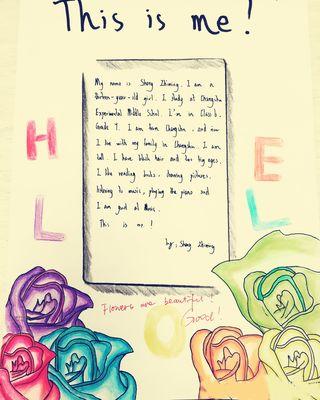 This is me!
My name is Shang Zhiming. I am a
thirteen-year-old girl. I study at Changchun
Experimental Middle School. I'm in Class 6,
Grade 7. I am from Changchun, and now
I live with my family in Changchun. I am
tall. I have black hair and two big eyes.
I like reading books, drawing pictures,
listening to music, playing the piano and
I am good at Music.
This is me!
by: Shang Zhiming
H
E
L
L
O
Flowers are beautiful!
Good!